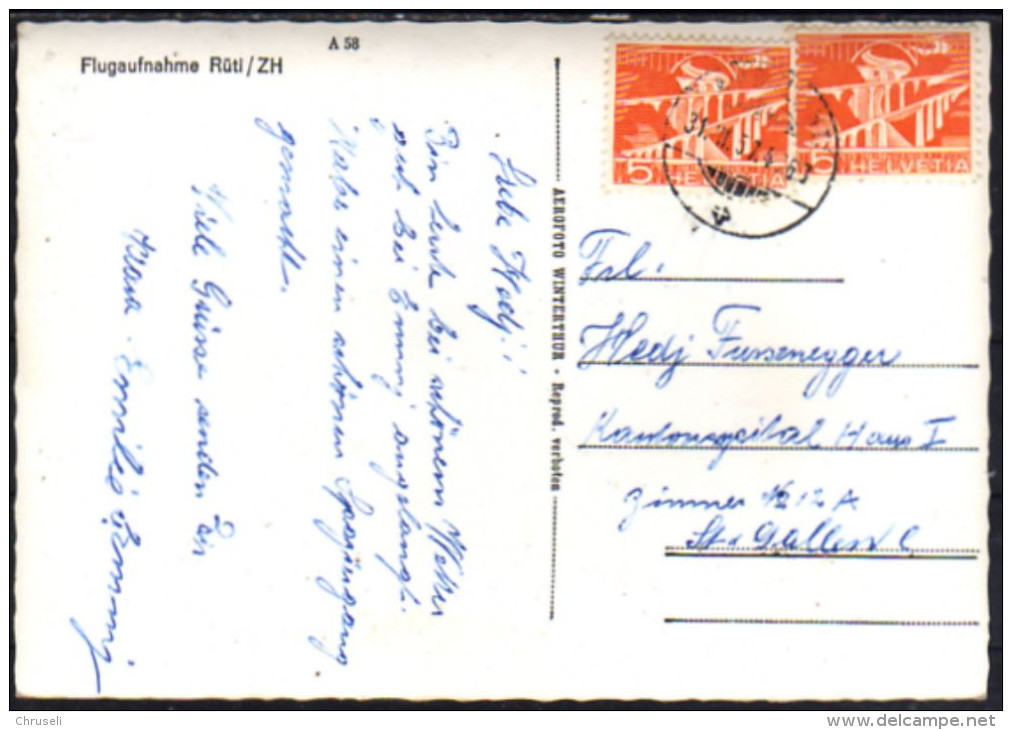 A 58
Flugaufnahme Rüti/ZH
Liebe Hedj!
Bin heute bei schönem Wetter
auch bei Emmj angelangt.
Habe einen schönen Spaziergang
gemacht.
Viele Grüsse senden Dir
Emmj
AEROFOTO WINTERTHUR - Reprod. verboten
5 HELVETIA
5 HELVETIA
31. 57.
Frl.
Hedj Fussenegger
Kantonsspital Haus I
Zimmer № 12 A
St. Gallen C
Chruseli
www.delcampe.net